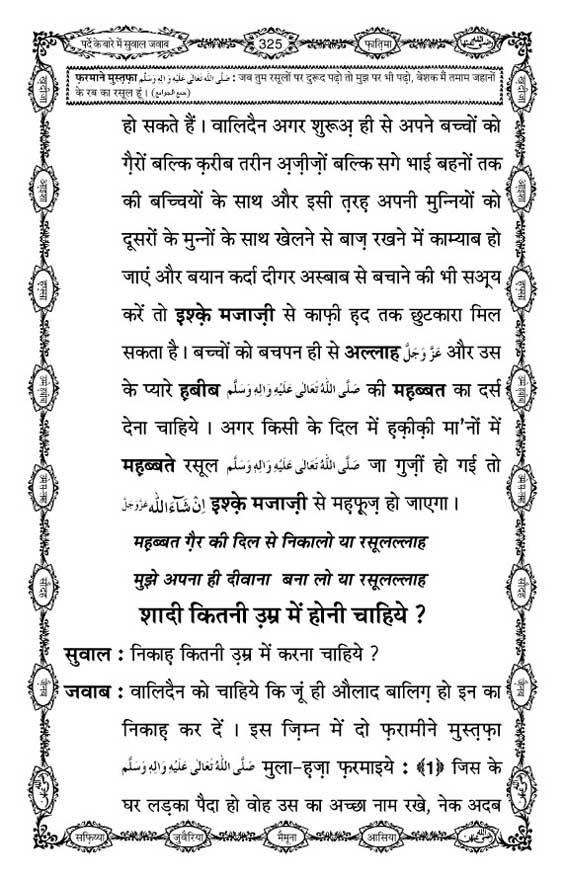 पर्दे के बारे में सुवाल जवाब
325
फ़ातिमा
फ़रमाने मुस्तफ़ा صَلَّى اللهُ تَعَالٰى عَلَيْهِ وَاٰلِهٖ وَسَلَّم : जब तुम रसूलों पर दुरूद पढ़ो तो मुझ पर भी पढ़ो, बेशक मैं तमाम जहानों
के रब का रसूल हूं। (جمع الجوامع)
हो सकते हैं। वालिदैन अगर शुरूअ़ ही से अपने बच्चों को
ग़ैरों बल्कि क़रीब तरीन अ़ज़ीज़ों बल्कि सगे भाई बहनों तक
की बच्चियों के साथ और इसी त़रह़ अपनी मुन्नियों को
दूसरों के मुन्नों के साथ खेलने से बाज़ रखने में काम्याब हो
जाएं और बयान कर्दा दीगर अस्बाब से बचाने की भी सअ़्य
करें तो इश्क़े मजाज़ी से काफ़ी ह़द तक छुटकारा मिल
सकता है। बच्चों को बचपन ही से अल्लाह عَزَّوَجَلَّ और उस
के प्यारे ह़बीब صَلَّى اللهُ تَعَالٰى عَلَيْهِ وَاٰلِهٖ وَسَلَّم की मह़ब्बत का दर्स
देना चाहिये। अगर किसी के दिल में ह़क़ीक़ी मा'नों में
मह़ब्बते रसूल صَلَّى اللهُ تَعَالٰى عَلَيْهِ وَاٰلِهٖ وَسَلَّم जा गुज़ीं हो गई तो
اِنْ شَآءَ اللّٰه عَزَّوَجَلَّ इश्क़े मजाज़ी से मह़फ़ूज़ हो जाएगा।
मह़ब्बत ग़ैर की दिल से निकालो या रसूलल्लाह
मुझे अपना ही दीवाना बना लो या रसूलल्लाह
शादी कितनी उ़म्र में होनी चाहिये ?
सुवाल : निकाह़ कितनी उ़म्र में करना चाहिये ?
जवाब : वालिदैन को चाहिये कि जूं ही औलाद बालिग़ हो इन का
निकाह़ कर दें। इस ज़िम्न में दो फ़रामीने मुस्त़फ़ा
صَلَّى اللهُ تَعَالٰى عَلَيْهِ وَاٰلِهٖ وَسَلَّم मुला-ह़ज़ा फ़रमाइये : ﴾1﴿ जिस के
घर लड़का पैदा हो वोह उस का अच्छा नाम रखे, नेक अदब
सफ़िय्या
जुवैरिया
मैमूना
आसिया